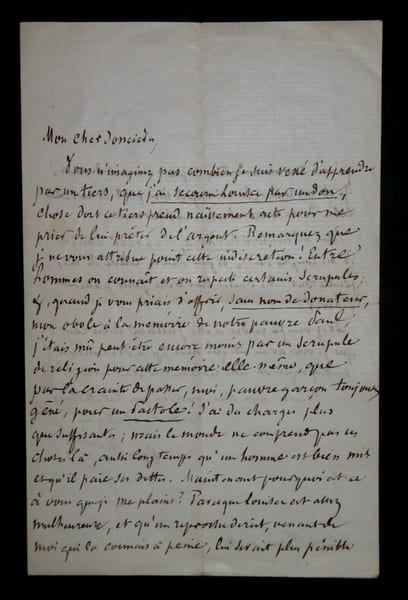 Mon cher Doncieu,
Vous n'imaginez pas combien je suis vexé d'apprendre
par un tiers, que j'ai secouru Louisa par un don,
chose dont ce tiers prend naïvement acte pour me
prier de lui prêter de l'argent. Remarquez que
je ne vous attribue point cette indiscretion! Entre
hommes on connaît et on respecte certains scrupules;
&, quand je vous priais d'offrir, sans nom de donateur,
mon obole à la mémoire de notre pauvre Paul,
j'étais mû peut être encore moins par un scrupule
de religion pour cette mémoire elle même, que
par la crainte de passer, moi, pauvre garçon toujours
gêné, pour un Pactole! J'ai des charges plus
que suffisantes; mais le monde ne comprend pas ces
choses là, aussi longtemps qu'un homme est bien mis
et qu'il paie ses dettes. Maintenant pourquoi est ce
à vous que je me plains? Parceque Louisa est assez
malheureuse, et qu'un reproche direct, venant de
moi qui la connais à peine, lui serait plus pénible